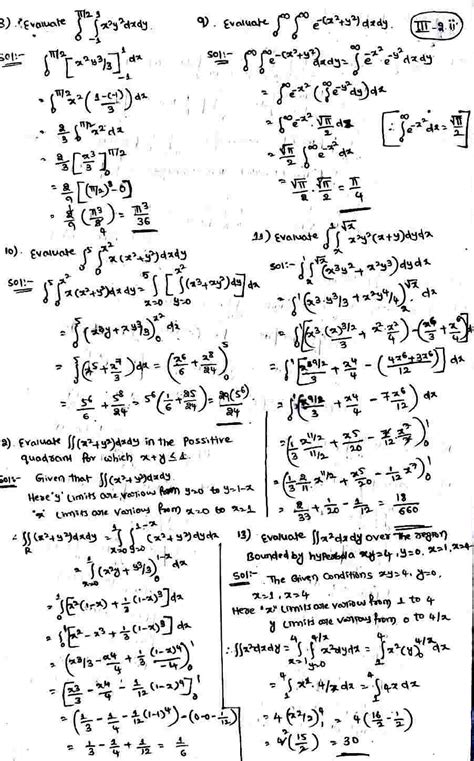 3). Evaluate ∫₀^{π/2} ∫₋₁^1 x²y² dxdy.
sol:- ∫₀^{π/2} [x²y³/3]₋₁^1 dx
= ∫₀^{π/2} x² (1-(-1)/3) dx
= 2/3 ∫₀^{π/2} x² dx
= 2/3 [x³/3]₀^{π/2}
= 2/9 [(π/2)³ - 0]
= 2/9 (π³/8) = π³/36
9). Evaluate ∫₀^∞ ∫₀^∞ e^{-(x²+y²)} dxdy
III - 2.ii
sol:- ∫₀^∞ ∫₀^∞ e^{-(x²+y²)} dxdy = ∫₀^∞ e^{-x²} e^{-y²} dxdy
= ∫₀^∞ e^{-x²} (∫₀^∞ e^{-y²} dy) dx
= ∫₀^∞ e^{-x²} √π/2 dx
[∵ ∫₀^∞ e^{-x²} dx = √π/2]
= √π/2 ∫₀^∞ e^{-x²} dx
= √π/2 · √π/2 = π/4
10). Evaluate ∫₀^5 ∫₀^{x²} x(x²+y²) dxdy
sol:- ∫₀^5 ∫₀^{x²} x(x²+y²) dxdy = ∫_{x=0}^5 [∫_{y=0}^{x²} (x³+xy²) dy] dx
= ∫₀^5 (x³y + xy³/3)₀^{x²} dx
= ∫₀^5 (x⁵ + x⁷/3) dx = (x⁶/6 + x⁸/24)₀^5
= 5⁶/6 + 5⁸/24 = 5⁶ (1/6 + 25/24) = 29(5⁶)/24
11) Evaluate ∫₀^1 ∫ₓ^{√x} x²y²(x+y) dydx
sol:- ∫₀^1 ∫ₓ^{√x} (x³y² + x²y³) dydx
= ∫₀^1 (x³·y³/3 + x²y⁴/4)ₓ^{√x} dx
= ∫₀^1 [(x³·(x)^{3/2}/3 + x²·x²/4) - (x⁶/3 + x⁶/4)] dx
= ∫₀^1 [x^{9/2}/3 + x⁴/4 - (4x⁶+3x⁶/12)] dx
= ∫₀^1 (x^{9/2}/3 + x⁴/4 - 7x⁶/12) dx
= (1/3 x^{11/2}/11/2 + x⁵/20 - 7/12 x⁷/7)₀^1
= (1/3 2/11 x^{11/2} + x⁵/20 - 1/12 x⁷)₀^1
= 2/33 + 1/20 - 1/12 = 18/660
2). Evaluate ∬(x²+y²)dxdy in the Possitive
quadrant for which x+y ≤ 1.
Sol:- Given that ∬(x²+y²)dxdy
Here 'y' limits are various from y=0 to y=1-x
'x' limits are various from x=0 to x=1
∴ ∬_R (x²+y²)dxdy = ∫_{x=0}^1 ∫_{y=0}^{1-x} (x²+y²) dydx
= ∫₀^1 (x²y + y³/3)₀^{1-x} dx
= ∫₀^1 [x²(1-x) + 1/3 (1-x)³] dx
= ∫₀^1 [x² - x³ + 1/3 (1-x)³] dx
= (x³/3 - x⁴/4 + 1/3 (1-x)⁴/4)₀^1
= [x³/3 - x⁴/4 - 1/12 (1-x)⁴]₀^1
= (1/3 - 1/4 - 1/12 (1-1)⁴) - (0-0-1/12)
= 1/3 - 1/4 + 1/12 = 1/6
13) Evaluate ∬x²dxdy over the region
Bounded by hyperbola xy=4, y=0, x=1, x=4
Sol:- The Given Conditions xy=4, y=0,
x=1, x=4
Here "x" limits are various from 1 to 4
y limits are various from 0 to 4/x
∴ ∬x²dxdy = ∫_{x=1}^4 ∫_{y=0}^{4/x} x²dydx = ∫₁^4 x²(y)₀^{4/x} dx
= ∫₁^4 x²·4/x dx = ∫₁^4 4x dx
= 4 (x²/2)₁^4 = 4(16/2 - 1/2)
= 4(15/2) = 30